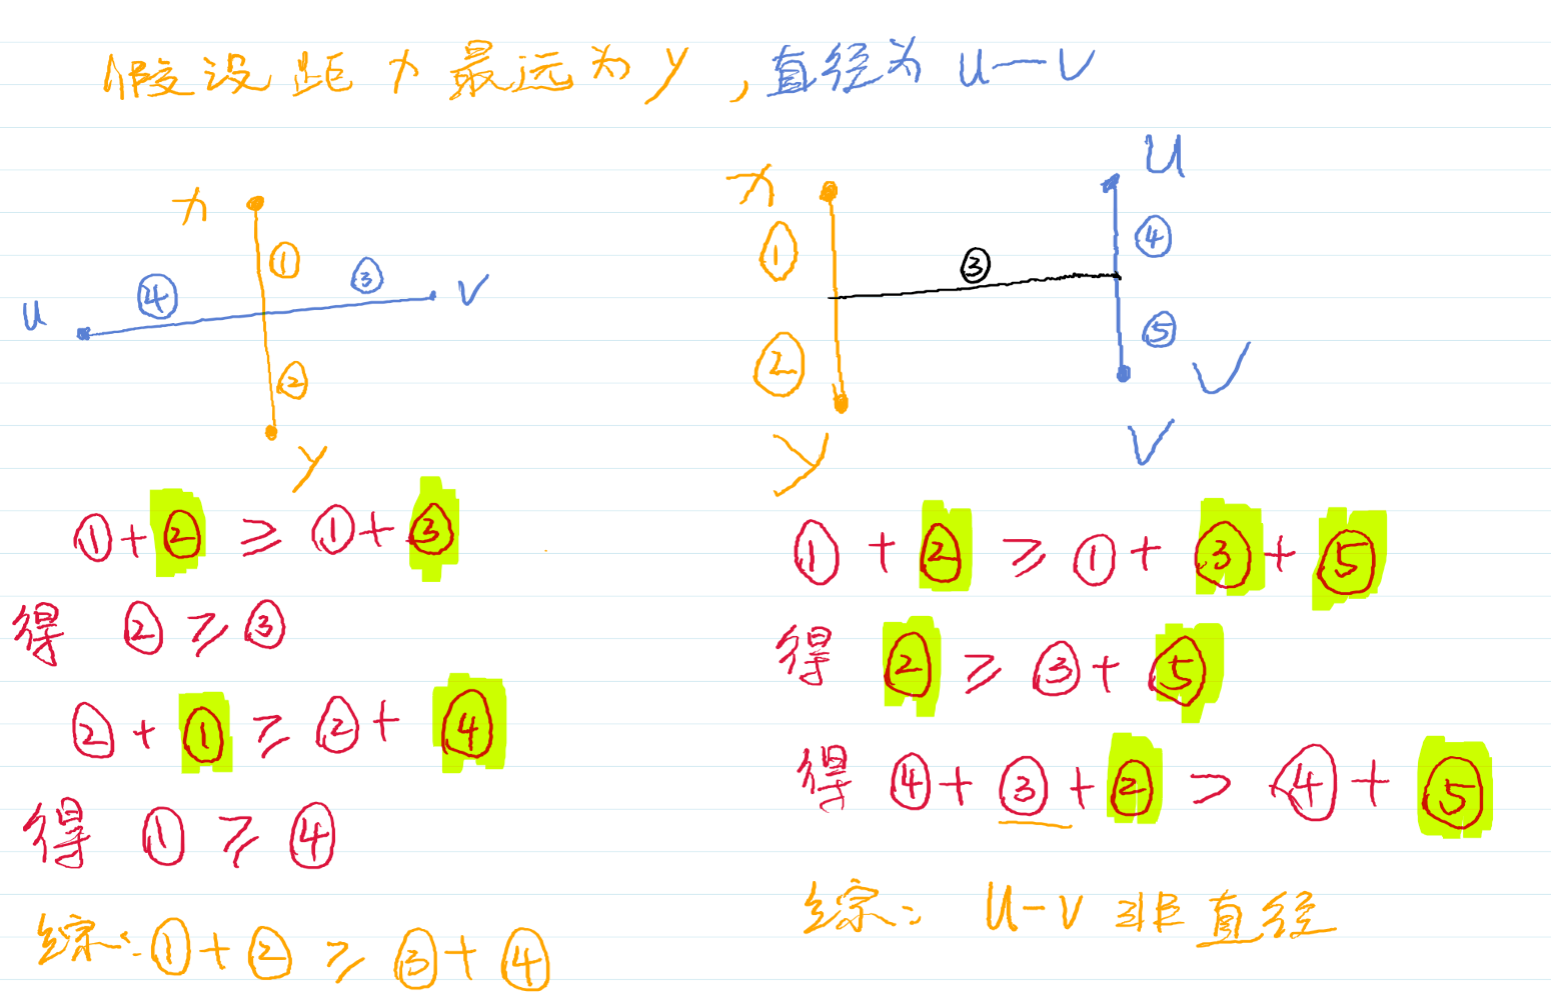 假设距x最远为y，直径为u—v
x
①
③
v
④
u
②
y
①+②≥①+③
得 ②≥③
②+①≥②+④
得 ①≥④
综:①+②≥③+④
x
u
①
④
③
②
⑤
v
y
v
①+②≥①+③+⑤
得 ②≥③+⑤
得 ④+③+②>④+⑤
综: u-v非直径